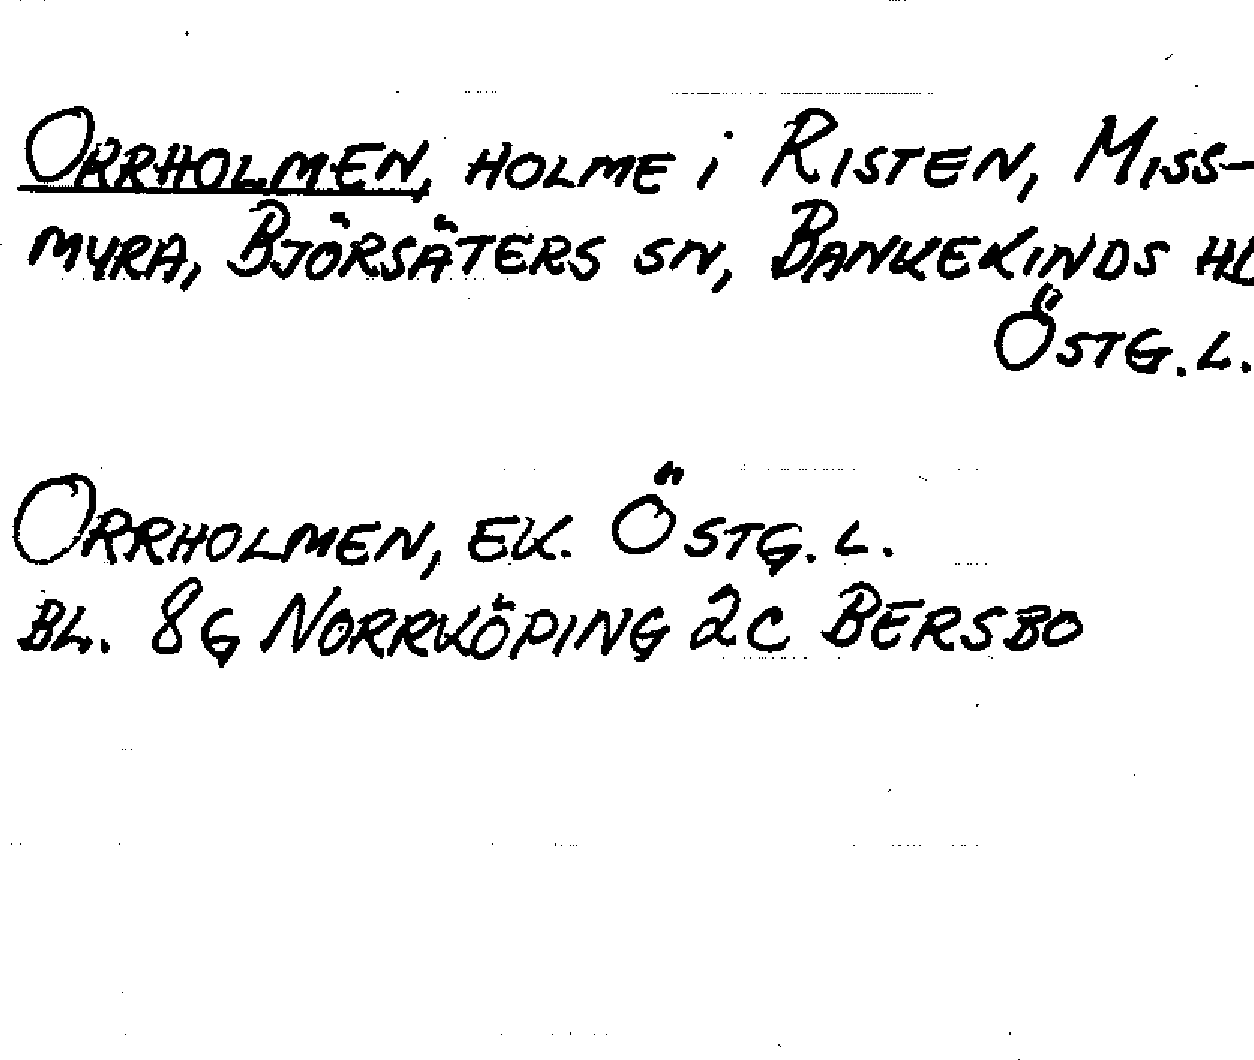 ORRHOLMEN, HOLME i RISTEN, MISS-
MYRA, BJÖRSÄTERS SN, BANKEKINDS HD
ÖSTG. L.
ORRHOLMEN, EK. ÖSTG. L.
BL. 8G NORRKÖPING 2C BERSBO